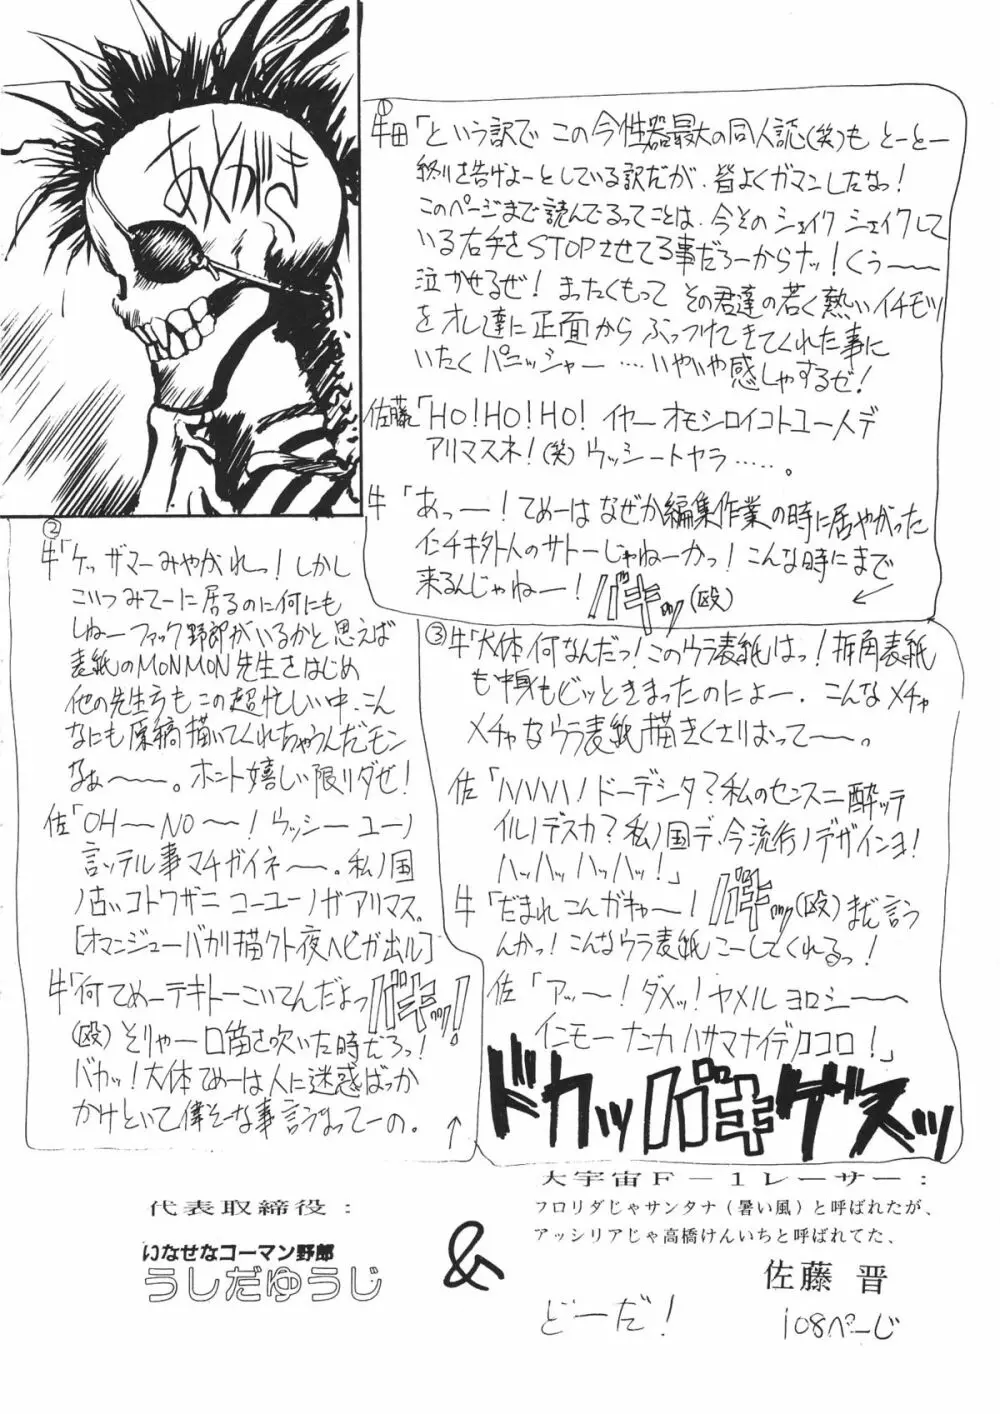 あとがき
①
牛田「という訳で この今性器最大の同人誌(笑)も とーとー
終りを告げよーとしている訳だが、皆よくガマンしたなっ!
このページまで読んでるってことは、今そのシェイク シェイクして
いる右手をSTOPさせてる事だろーからナッ!くぅ〜〜
泣かせるぜ! まったくもって その君達の若く熱いイチモツ
をオレ達に正面から ぶっつけてきてくれた事に
いたく パニッシャー ‥‥いやいや感しゃするぜ!
佐藤「HO!HO!HO! イヤーオモシロイコトユー人デ
アリマスネ!(笑)ウッシートヤラ‥‥‥。
牛「あっ〜!てめーは なぜか編集作業の時に居やがった
インチキ外人のサトーじゃねーかっ!こんな時にまで
来るんじゃねー! バキッッ(殴)
↙
②
牛「ケッ ザマーみやがれっ! しかし
こいつみてーに居るのに何にも
しねーファック野郎がいるかと思えば
表紙のMONMON先生をはじめ
他の先生方も この超忙しい中、こん
なにも原稿描いてくれちゃうんだモン
なぁ〜〜。ホント嬉しい限りダゼ!
佐「OH〜NO〜!ウッシー ユーノ
言ッテル事マチガイネ〜。私ノ国
ノ古いコトワザニ コーユーノガアリマス。
[オマンジューバカリ描クト夜ヘビガ出ル]
牛「何てめーテキトーこいてんだよっ バキッッ!
(殴)そりゃー口笛を吹いた時だろっ!
バカッ!大体てめーは人に迷惑ばっか
かけといて偉そーな事言うなってーの。
↑
③
牛「大体何なんだっ!このウラ表紙はっ!折角表紙
も中身もビッときまったのによー、こんなメチャ
メチャなウラ表紙描きくさりおって〜〜。
佐「ハハハハ!ドーデシタ?私のセンスニ酔ッテ
イルノデスカ?私ノ国デ、今流行ノデザインヨ!
ハッハッハッハッ!」
牛「だまれこんガキゃ〜! バキッッ(殴)まだ言う
んかっ!こんなウラ表紙こーしてくれるっ!
佐「アッ〜!ダメッ!ヤメル ヨロシ〜〜
インモーナンカ ハサマナイデ
ドカッ バキ ゲスッ
代表取締役:
いなせなコーマン野郎
うしだゆうじ
&
大宇宙F-1レーサー:
フロリダじゃサンタナ(暑い風)と呼ばれたが、
アッシリアじゃ高橋けんいちと呼ばれてた、
佐藤 晋
どーだ!
108ページ